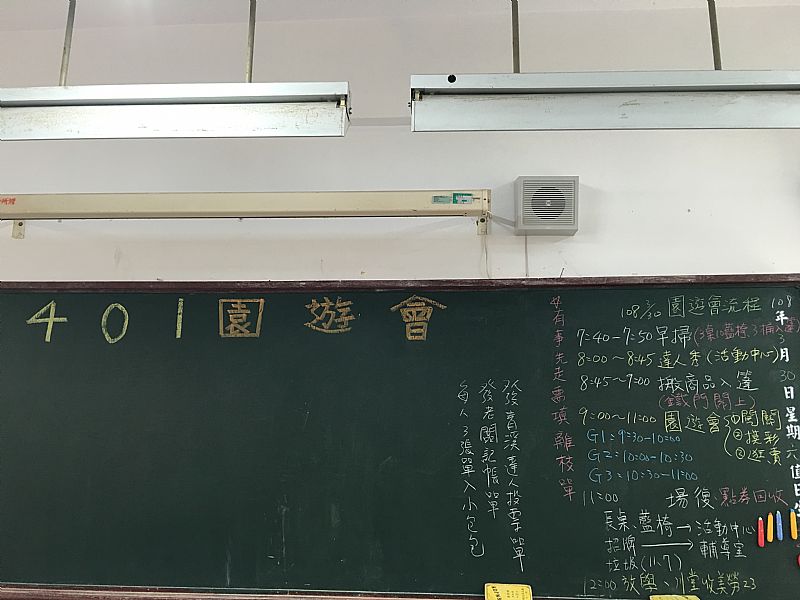 401園遊會
發青溪達人投票單
發老闆記帳單
每人3張單入小包包
有事先走需填離校單
108 3/30 園遊會流程
7:40-7:50早掃
8:00~8:45達人秀(活動中心)
8:45~9:00 搬商品入篷
(鐵門關上)
9:00~11:00 園遊會
①闖關
②摸彩
③逛賣
G1=9:30-10:00
G2=10:00-10:30
G3=10:30-11:00
11:00 場復、點券回收
長桌、藍椅→活動中心
招牌→輔導室
垃圾(11-7)
12:00放學、川堂收美勞23
108年3月30日星期六
值日生